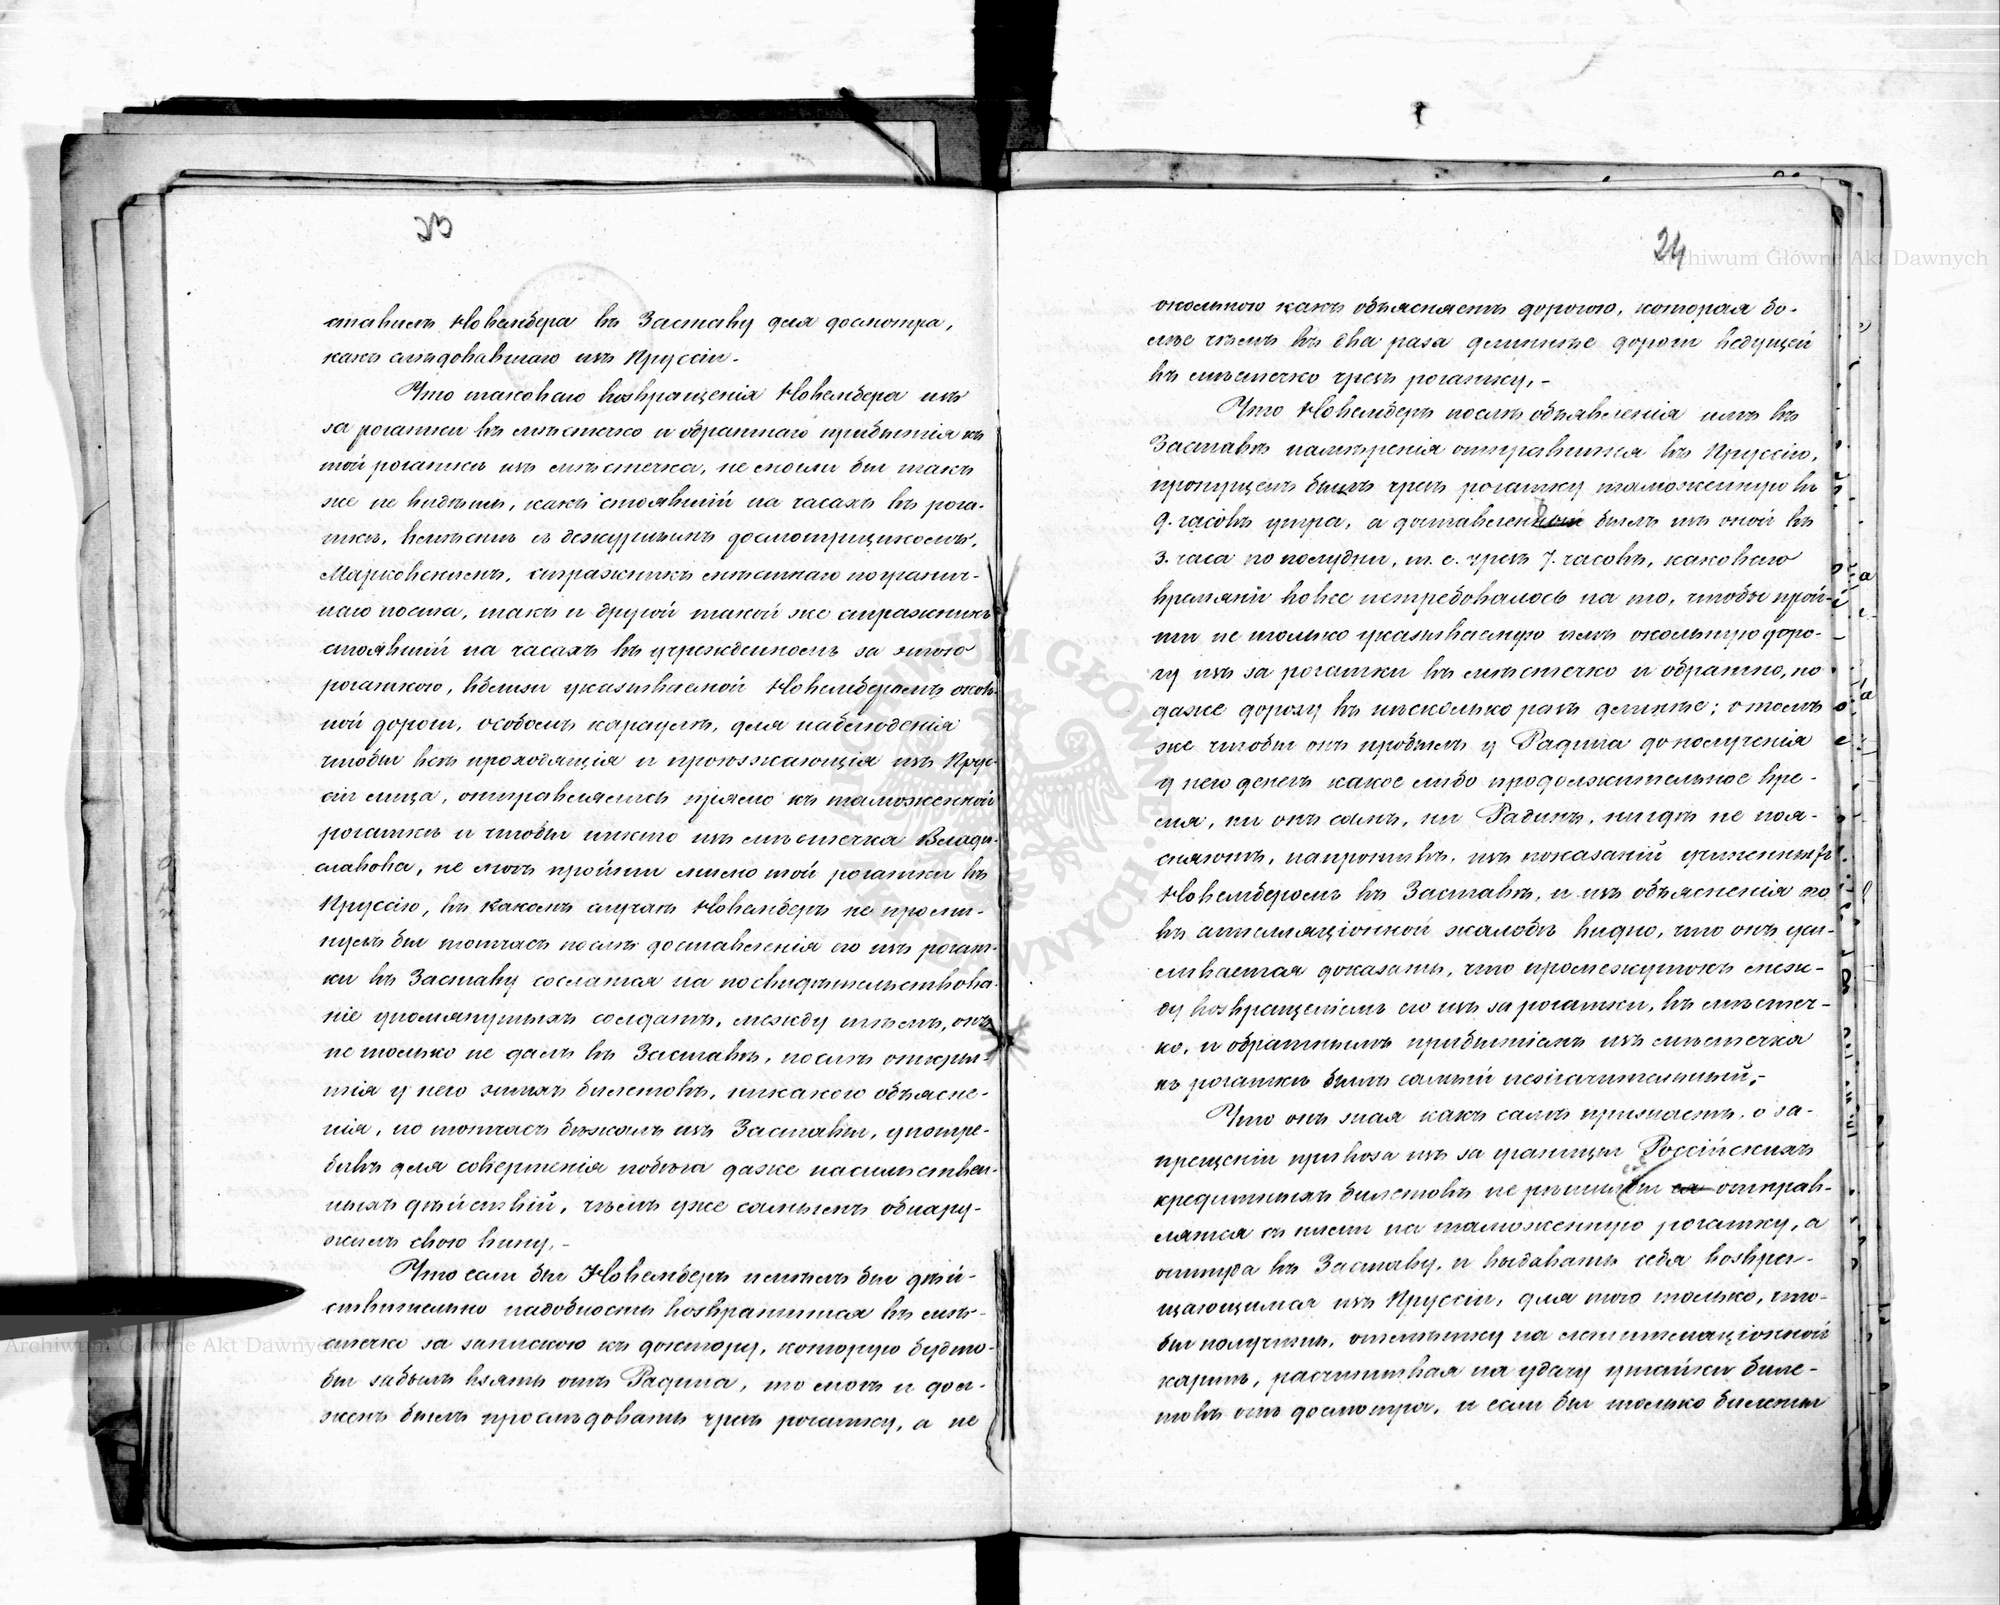 23
ставилъ Новембера въ Заставу для досмотра,
какъ слѣдовавшаго изъ Пруссіи.
Что таковаго возвращенія Новембера изъ
за рогатки въ мѣстечко и обратнаго прибытія къ
той рогаткѣ изъ мѣстечка, не могли бы такъ
же не видѣть, какъ стоявшій на часахъ въ рога-
ткѣ, вмѣстѣ съ дежурнымъ досмотрщикомъ,
Марковскимъ, стражникъ мѣстнаго погранич-
наго поста, такъ и другой такой же стражникъ
стоявшій на часахъ въ учрежденномъ за этою
рогаткою, вблизи указываемой Новемберомъ околь-
ной дороги, особомъ караулѣ, для наблюденія
чтобы всѣ проходящія и проѣзжающія изъ Прус-
сіи лица, отправлялись прямо къ таможенной
рогаткѣ и чтобы никто изъ мѣстечка Влади-
славова, не могъ пройти мимо той рогатки въ
Пруссію, въ какомъ случаѣ Новемберъ не проми-
нулъ бы тотчасъ послѣ доставленія его изъ рогат-
ки въ Заставу сослаться на посвидѣтельствова-
ніе упомянутыхъ солдатъ, между тѣмъ, онъ
не только не далъ въ Заставѣ, послѣ откры-
тія у него этихъ билетовъ, никакого объясне-
нія, но тотчасъ бѣжалъ изъ Заставы, употре-
бивъ для совершенія побѣга даже насильствен-
ныхъ дѣйствій, чѣмъ уже самымъ обнару-
жилъ свою вину.
Что если бы Новемберъ имѣлъ бы дѣй-
ствительно надобность возвратиться въ мѣ-
стечко за запискою къ доктору, которую будто-
бы забылъ взять отъ Радина, то могъ и дол-
женъ былъ прослѣдовать чрезъ рогатку, а не
24
окольною какъ объясняетъ дорогою, которая бо-
лѣе чѣмъ въ два раза длиннѣе дороги ведущей
въ мѣстечко чрезъ рогатку.
Что Новемберъ послѣ объявленія имъ въ
Заставѣ намѣренія отправиться въ Пруссію,
пропущенъ былъ чрезъ рогатку таможенную въ
9. часовъ утра, а доставленъ былъ изъ оной въ
3. часа по полудни, т. е. чрезъ 7. часовъ, каковаго
времяни вовсе нетребовалось на то, чтобы прой-
ти не только указываемую имъ окольную доро-
гу изъ за рогатки въ мѣстечко и обратно, но
даже дорогу въ нѣсколько разъ длиннѣе; о томъ
же чтобы онъ пробылъ у Радина до полученія
у него денегъ какое либо продолжительное вре-
мя, ни онъ самъ, ни Радинъ, нигдѣ не поя-
сняютъ, напротивъ, изъ показаній учиненныхъ
Новемберомъ въ Заставѣ, и изъ объясненія его
въ апелляціонной жалобѣ видно, что онъ уси-
ливается доказать, что промежутокъ меж-
ду возвращеніемъ его изъ за рогатки, въ мѣстеч-
ко, и обратнымъ прибытіемъ изъ мѣстечка
къ рогаткѣ былъ самый незначительный.
Что онъ зная какъ самъ признаетъ, о за-
прещеніи привоза изъ за границы Россійскихъ
кредитныхъ билетовъ не рѣшил бы отправ-
ляться съ ними на таможенную рогатку, а
оттуда въ Заставу, и выдавать себя возвра-
щающимся изъ Пруссіи, для того только, что-
бы получить, отмѣтку на легитимаціонной
картѣ, расчитывая на удачу утайки биле-
товъ отъ досмотра, и если бы только билеты